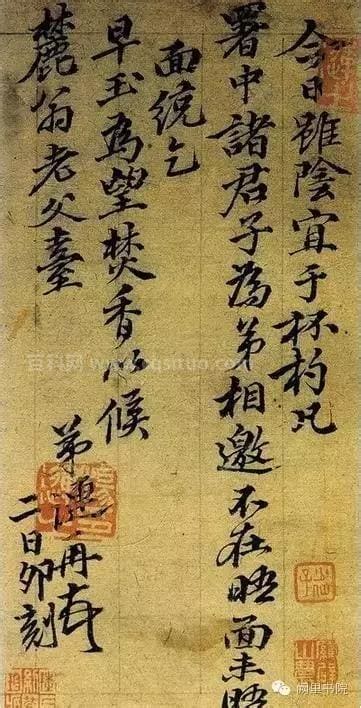 今日雖陰宜于杯杓凡
署中諸君子為弟相邀不在晤面未晤
面統乞
早玉為望焚香以候
麓翁老父臺
弟 再
二日卯刻
百科网
阙里书院